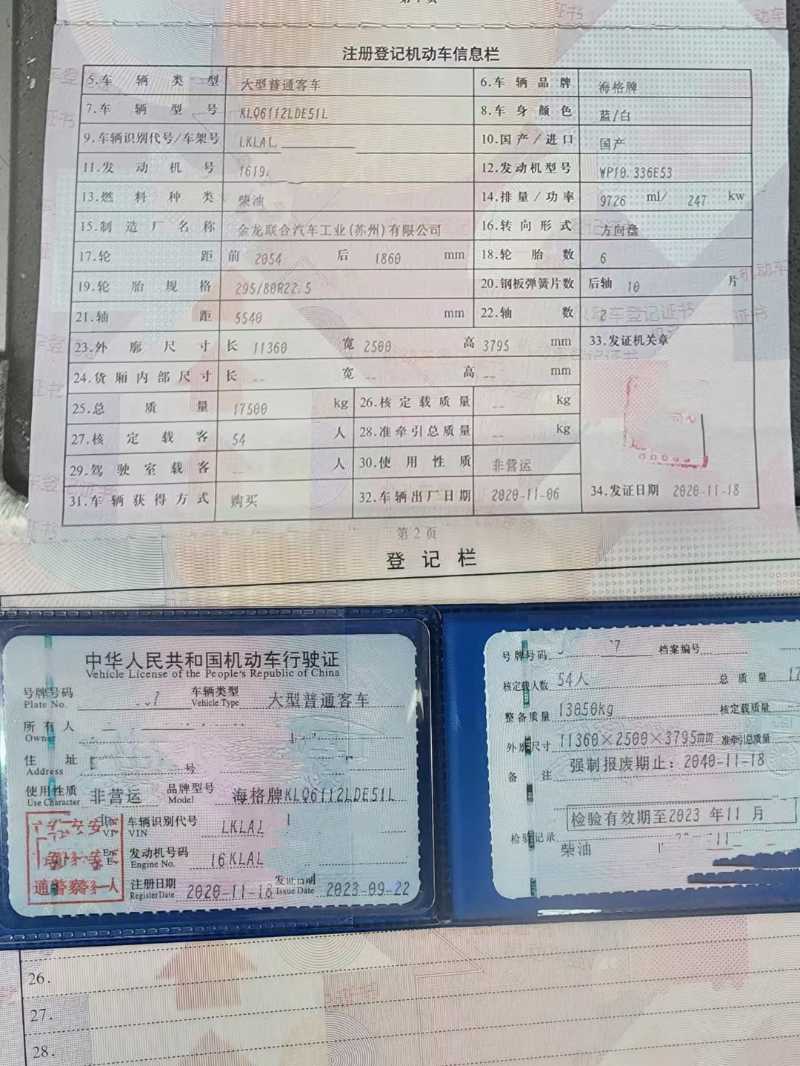 注册登记机动车信息栏
5.车辆类型 大型普通客车 6.车辆品牌 海格牌
7.车辆型号 KLQ6112LDE51L 8.车身颜色 蓝/白
9.车辆识别代号/车架号 LKLAL 10.国产/进口 国产
11.发动机号 1619 12.发动机型号 WP10.336E53
13.燃料种类 柴油 14.排量/功率 9726 ml/ 247 kw
15.制造厂名称 金龙联合汽车工业(苏州)有限公司 16.转向形式 方向盘
17.轮距 前 2054 后 1860 mm 18.轮胎数 6
19.轮胎规格 295/80R22.5 20.钢板弹簧片数 后轴 10 片
21.轴距 5540 mm 22.轴数 2
23.外廓尺寸 长 11360 宽 2500 高 3795 mm 33.发证机关章
24.货厢内部尺寸 长 -- 宽 -- 高 -- mm
25.总质量 17500 kg 26.核定载质量 -- kg
27.核定载客 54 人 28.准牵引总质量 -- kg
29.驾驶室载客 -- 人 30.使用性质 非营运
31.车辆获得方式 购买 32.车辆出厂日期 2020-11-06 34.发证日期 2020-11-18
第2页
登记栏
中华人民共和国机动车行驶证
Vehicle License of the People's Republic of China
号牌号码 7 车辆类型 大型普通客车
Plate No. Vehicle Type
所有人
Owner
住址 号
Address
使用性质 非营运 品牌型号 海格牌KLQ6112LDE51L
Use Character Model
车辆识别代号 LKLAL
VIN
发动机号码 16KLAL
Engine No.
注册日期 2020-11-18 发证日期 2023-09-22
Register Date Issue Date
号牌号码 7 档案编号
核定载人数 54人 总质量 17
整备质量 13050kg 核定载质量
外廓尺寸 11360×2500×3795 准牵引总质量
备注 强制报废期止：2040-11-18
检验有效期至2023年11月
检验记录
柴油
26.
27.
28.